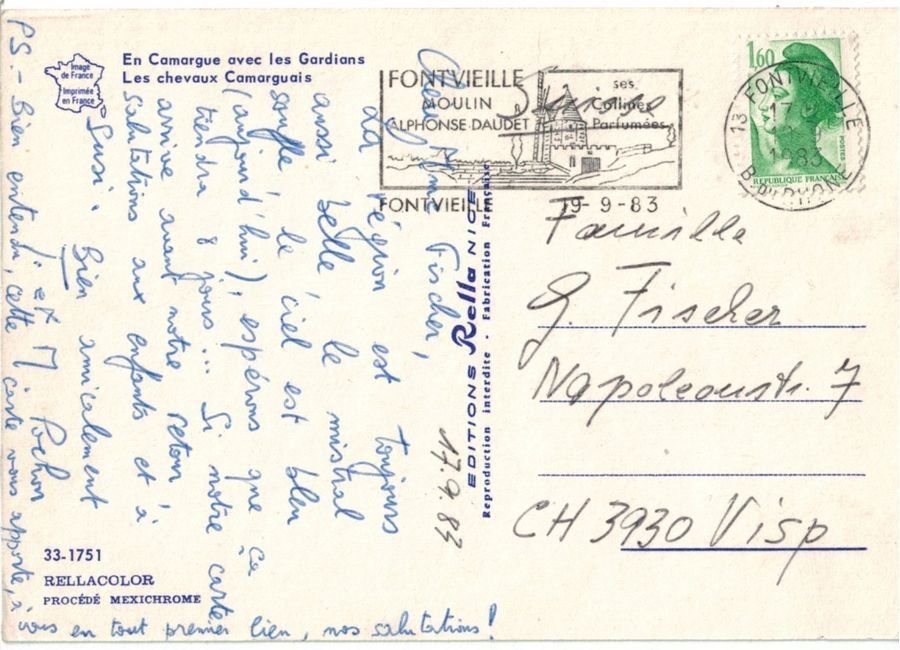 En Camargue avec les Gardians
Les chevaux Camarguais
Image
de France
Imprimée
en France
FONTVIEILLE
MOULIN
ALPHONSE-DAUDET
ses
Collines
Parfumées
FONTVIEILLE
19-9-83
1,60
REPUBLIQUE FRANÇAISE
POSTES
13 FONTVIEILLE
17 H
19-9
1983
B. DU RHONE
Suisse
Famille
G. Fischer
Napoleonstr. 7
CH 3930 Visp
EDITIONS Rella NICE
Reproduction interdite - Fabrication Française
17.9.83
Fischer,
La région est toujours
aussi belle, le mistral
souffle, le ciel est bleu
(aujourd'hui), espérons que ça
tiendra 8 jours... Si notre carte
arrive avant notre retour,
salutations aux enfants et à
Susi. Bien amicalement
J. et M. Pochon
PS.- bien entendu, cette carte vous apporte, à
vous en tout premier lieu, nos salutations!
33-1751
RELLACOLOR
PROCÉDÉ MEXICHROME